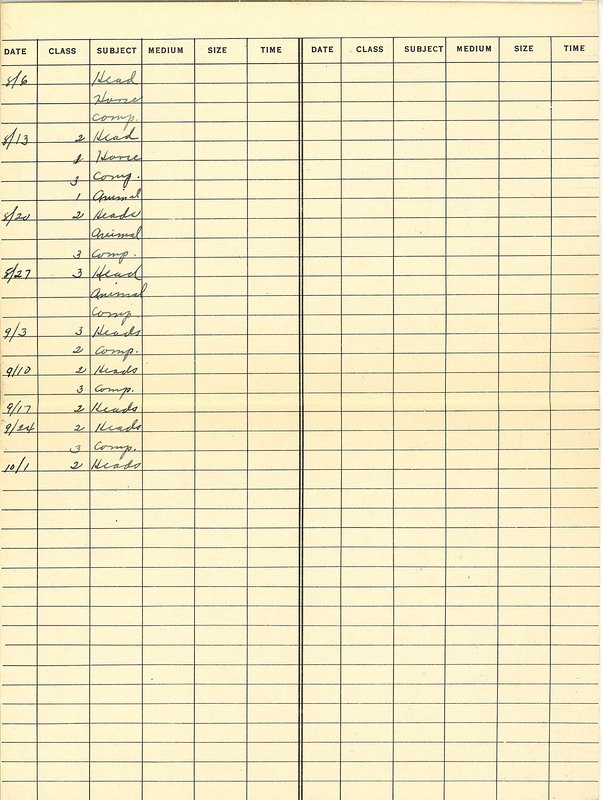 DATE CLASS SUBJECT MEDIUM SIZE TIME DATE CLASS SUBJECT MEDIUM SIZE TIME
8/6 Head
Horse
Comp.
8/13 2 Head
Horse
3 Comp.
1 Animal
8/20 2 Heads
Animal
3 Comp.
8/27 3 Head
Animal
Comp.
9/3 3 Heads
2 Comp.
9/10 2 Heads
3 Comp.
9/17 2 Heads
9/24 2 Heads
3 Comp.
10/1 2 Heads